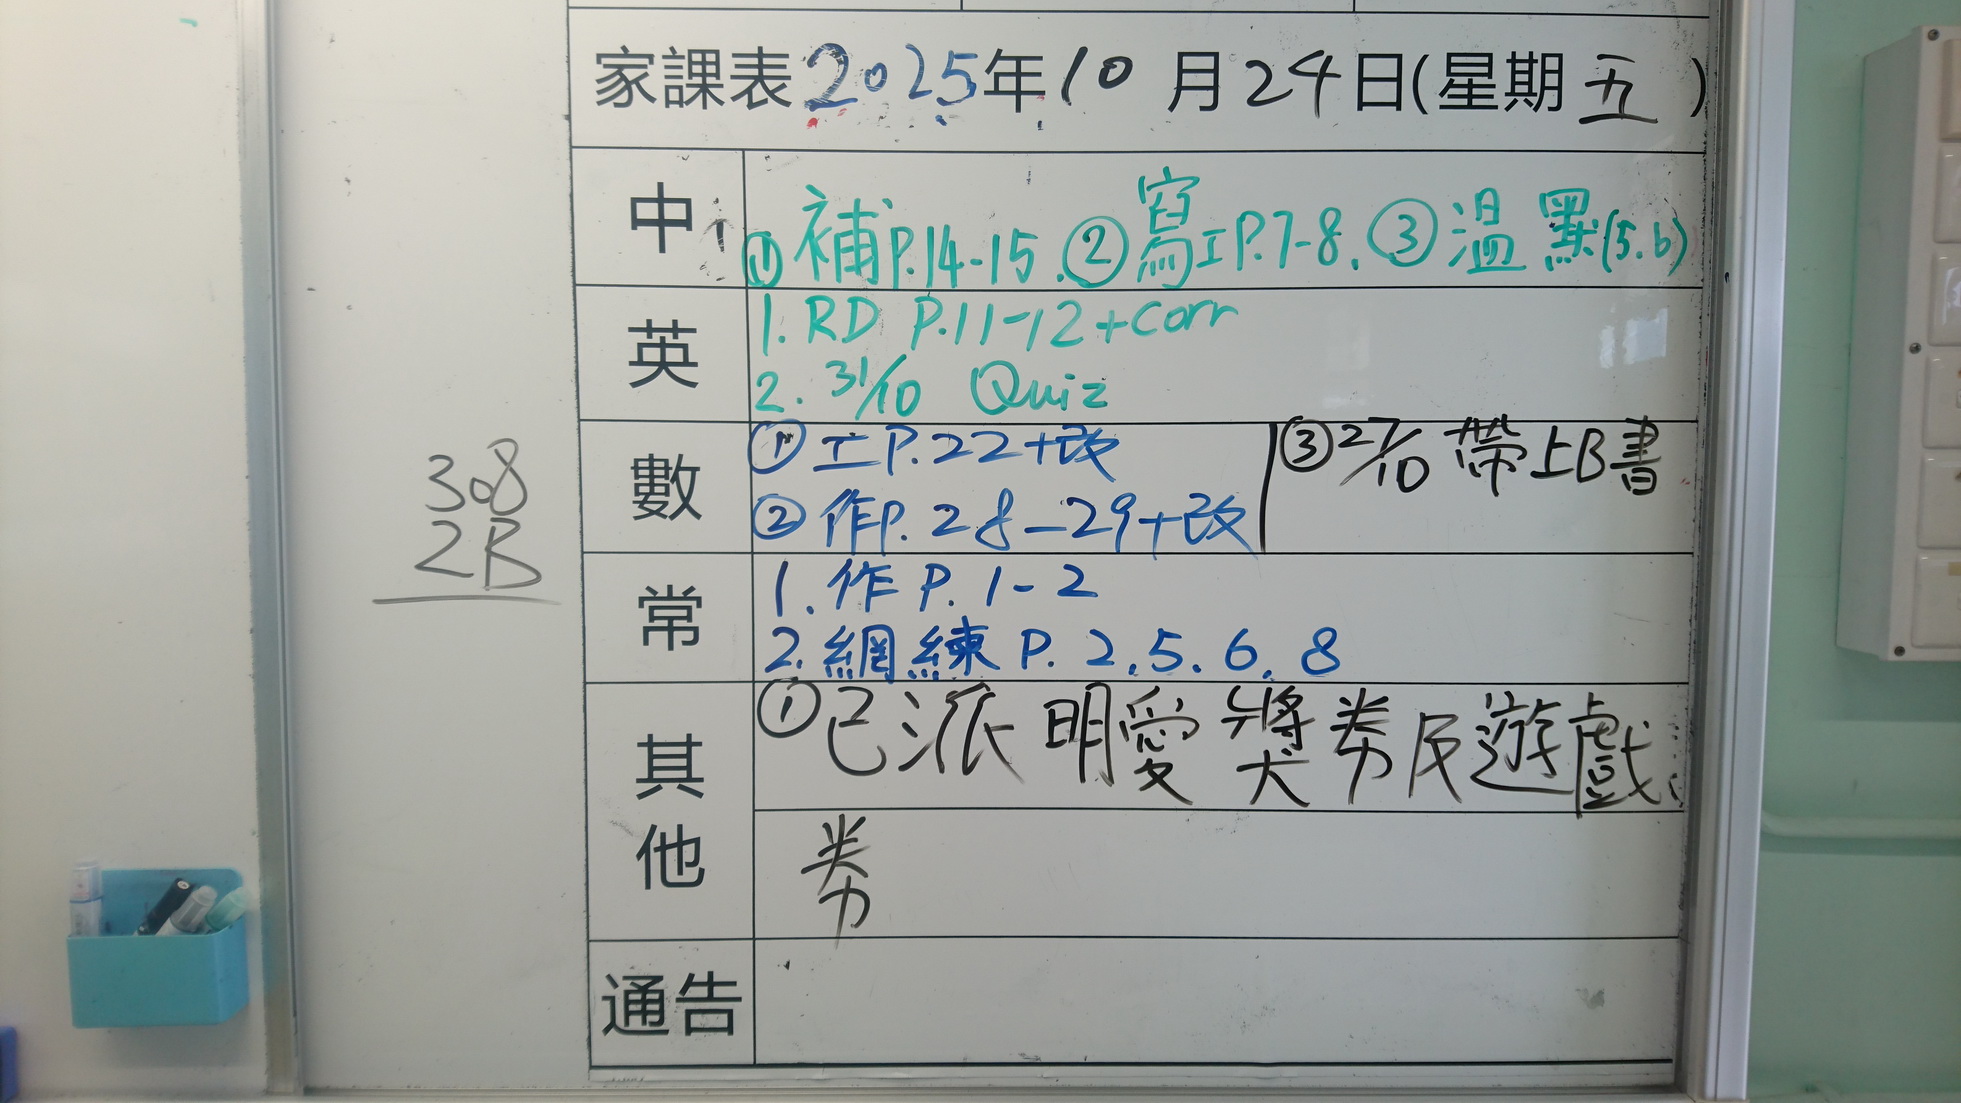 家課表2025年10月24日(星期五)
中
①補P.14-15.②寫工P.7-8.③溫默(5.6)
英
1. RD P.11-12+corr
2. 31/10 Quiz
數
①工P.22+改
②作P.28-29+改
③27/10帶上B書
常
1. 作P.1-2
2. 網練P.2.5.6.8
其他
①已派明愛獎券及遊戲
券
通告
308
2B